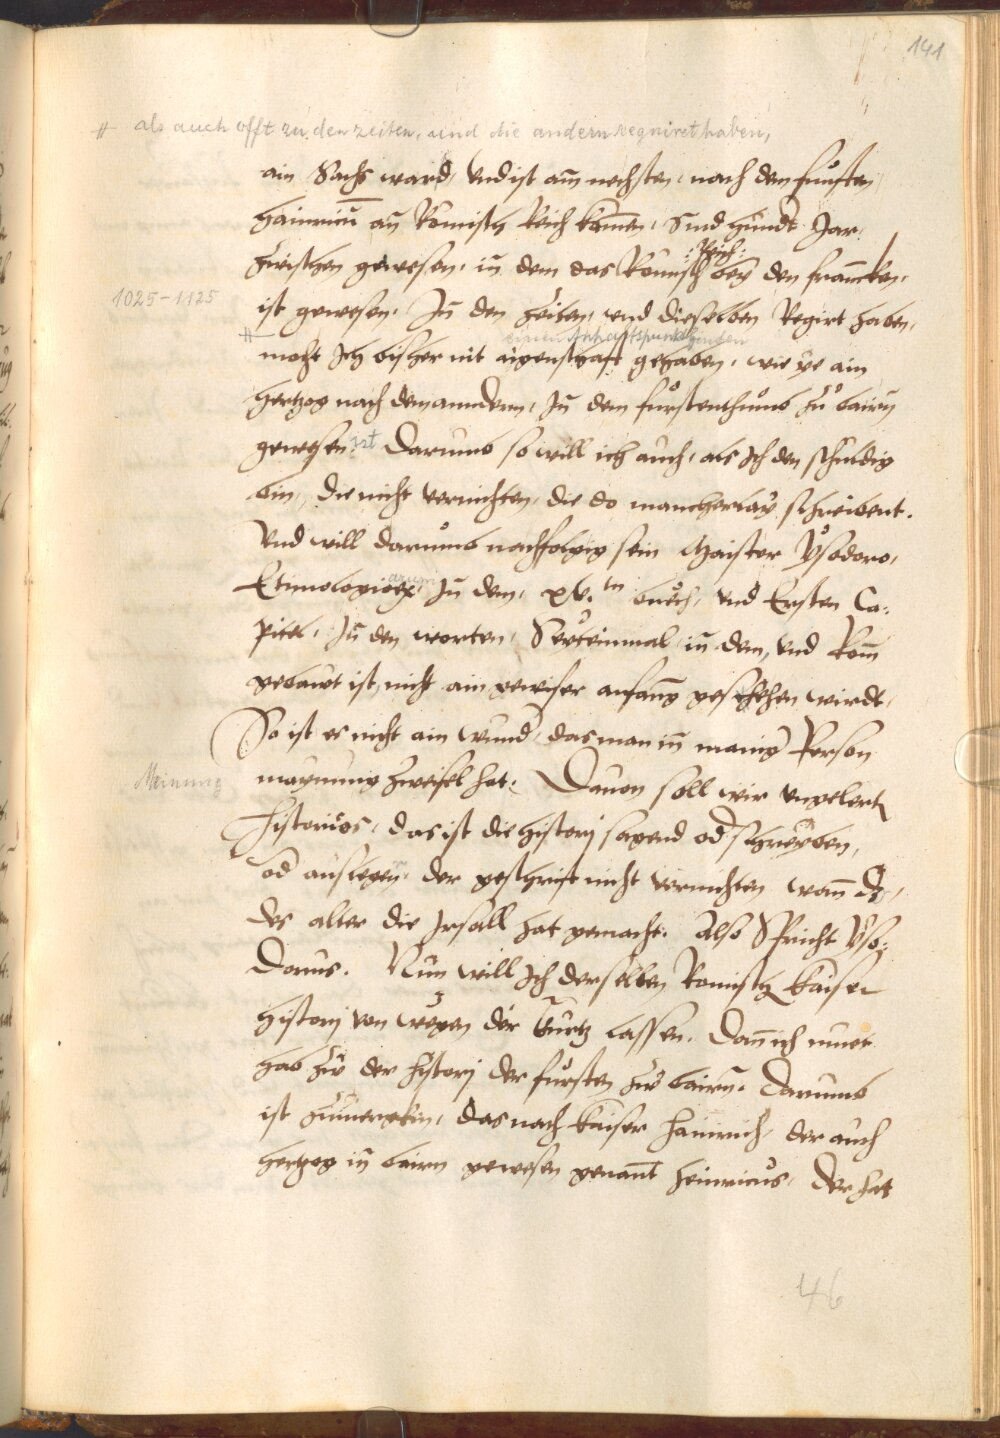 141
# als auch offt zu den zeiten, und die andern regniret haben,
ain Sachs ward, Vnd ist am̄ nechsten, nach dem funften
Hainricū an Romisch Reich komen, Sind hundt Jar,
: Reich :
zwischen gewesen, in dem das Romisch bey den francken,
1025-1125
ist gewesen, In den Zeiten, vnd dieselben Regirt haben,
einen Anhaltspunkt finden
mocht Ich bisher nit aigenschafft gehaben, wie ye ain
Hertzog nach dem anndern, In dem fürstenthumb zu bairn
gewesen ist Darumb so will ich auch, als Ich den schuldig
bin, die nicht vernichten, die do mancherlay schreibent.
Vnd will darumb nachfolgig sein Maister Ysodoro,
arum
Etimologior, In dem, xv.tn buech, vnd Ersten Ca:
pitel, In den worten, Seyteinmal in dem, vnd Rom̄
gebawt ist, nicht ain gewiser anfang geschehen wirdt,
So ist es nicht ain wund, das man in manig Person
Meinung
maynung zweifel hat. Dauon soll wir vngelert
Historicos, das ist die history sagend od schreyben,
od auslegen, der geschrift nicht vernichten wann d,
des alter die Irsall hat gemacht. Also Spricht Yso:
dorus. Nun will Ich derselben Romisch Kaiser
history von wegen der Kurtz lassen. Dann ich muet
hab zu der history der fursten zu bairn. Darumb
ist zumercken, das nach Kaiser Hainrich, der auch
Hertzog in bairn gewesen genant Heinricus, Der hat
46